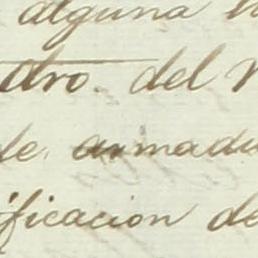 alguna
dro. del
de armadu
ificacion de